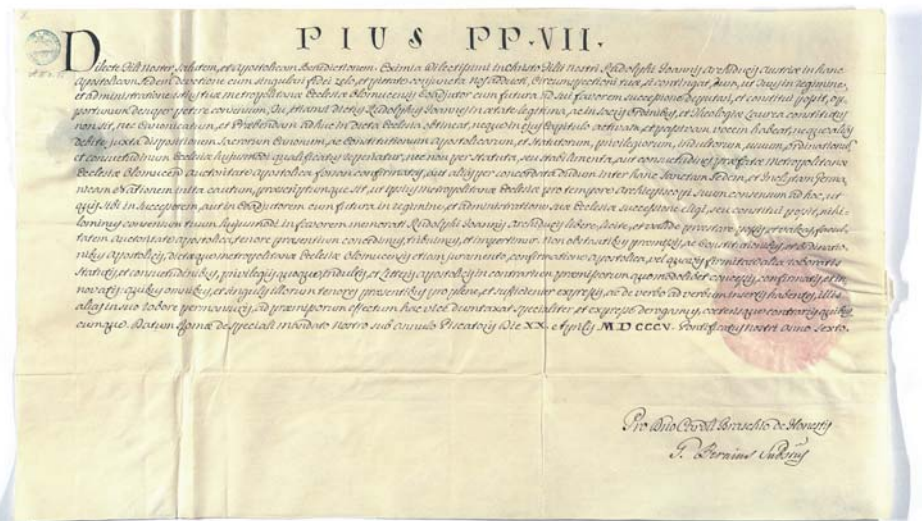 PIUS PP.VII.
Dilecte Fili Noster Salutem, et Apostolicam Benedictionem. Eximia Dilectissimi in Christo Filii Nostri Rudolphi Joannis Archiducis Austriæ in hanc
Apostolicam Sedem devotione cum singulari fidei zelo, et pietate conjuncta Nos adducit, Circumspectioni tuæ, si contingat, eum, ut Suus in regimine,
et administratione istius tuæ metropolitanæ Ecclesiæ Olomucensis Coadjutor cum futura, ad sui favorem successione deputari, et constitui possit, op-
portunum desuper petere consensum, Tu, etiamsi dictus Rudolphus Joannes in ætate legitima, ac in Sacris Ordinibus, et Theologiæ Laurea constitutus
non sit, nec Canonicatum, et Præbendam adhuc in dicta Ecclesia obtineat, neque in ejus Capitulo activam, et passivam vocem habeat, neque alias
debite, juxta dispositionem Sacrorum Canonum, ac Constitutionum Apostolicarum, et Statutorum, privilegiorum, indultorum, usuum, ordinationum,
et consuetudinum Ecclesiæ hujusmodi qualificatus reperiatur, nec non per Statuta, seu stabilimenta, aut consuetudines præfatæ Metropolitanæ
Ecclesiæ Olomucen Auctoritate Apostolica forsan confirmatas, aut alias per concordata dudum inter hanc Sanctam Sedem, et Inclytam Germa-
nicam Nationem inita cautum, præscriptumque sit, ut ipsius metropolitanæ Ecclesiæ pro tempore Archiepiscopus Suum consensum ad hoc, ut
quis sibi in Successorem, aut in Coadjutorem cum futura in regimine, et administratione suæ Ecclesiæ successione eligi, seu constitui possit, nihi-
lominus consensum tuum hujusmodi in favorem memorati Rudolphi Joannis Archiducis libere, licite, et valide præstare possis, et valeas, facul-
tatem Auctoritate Apostolica, tenore præsentium concedimus, tribuimus, et impertimur. Non obstantibus præmissis, ac Constitutionibus, et Ordinatio-
nibus Apostolicis, dictæque metropolitanæ Ecclesiæ Olomucensis etiam juramento, confirmatione Apostolica, vel quavis firmitate alia roboratis
Statutis, et consuetudinibus, privilegiis quoque, indultis, et Literis Apostolicis in contrarium præmissorum quomodolibet concessis, confirmatis, et in-
novatis: quibus omnibus, et singulis illorum tenores præsentibus pro plene, et sufficienter expressis, ac de verbo ad verbum insertis habentes, illis
alias in suo robore permansuris, ad præmissorum effectum hac vice dumtaxat specialiter, et expresse derogamus, cæterisque contrariis quibus-
cumque. Datum Romæ de speciali mandato Nostro sub Annulo Piscatoris Die XX. Aprilis MDCCCV. Pontificatus Nostri Anno Sexto.
Pro Dño Card: Braschio de Honestis
G. Bernius Substus